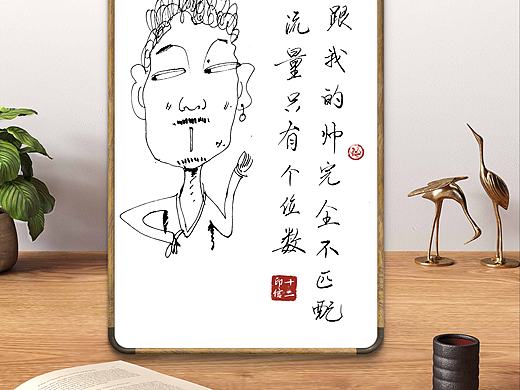 跟我的帅完全不匹配
流量只有个位数
十二印信